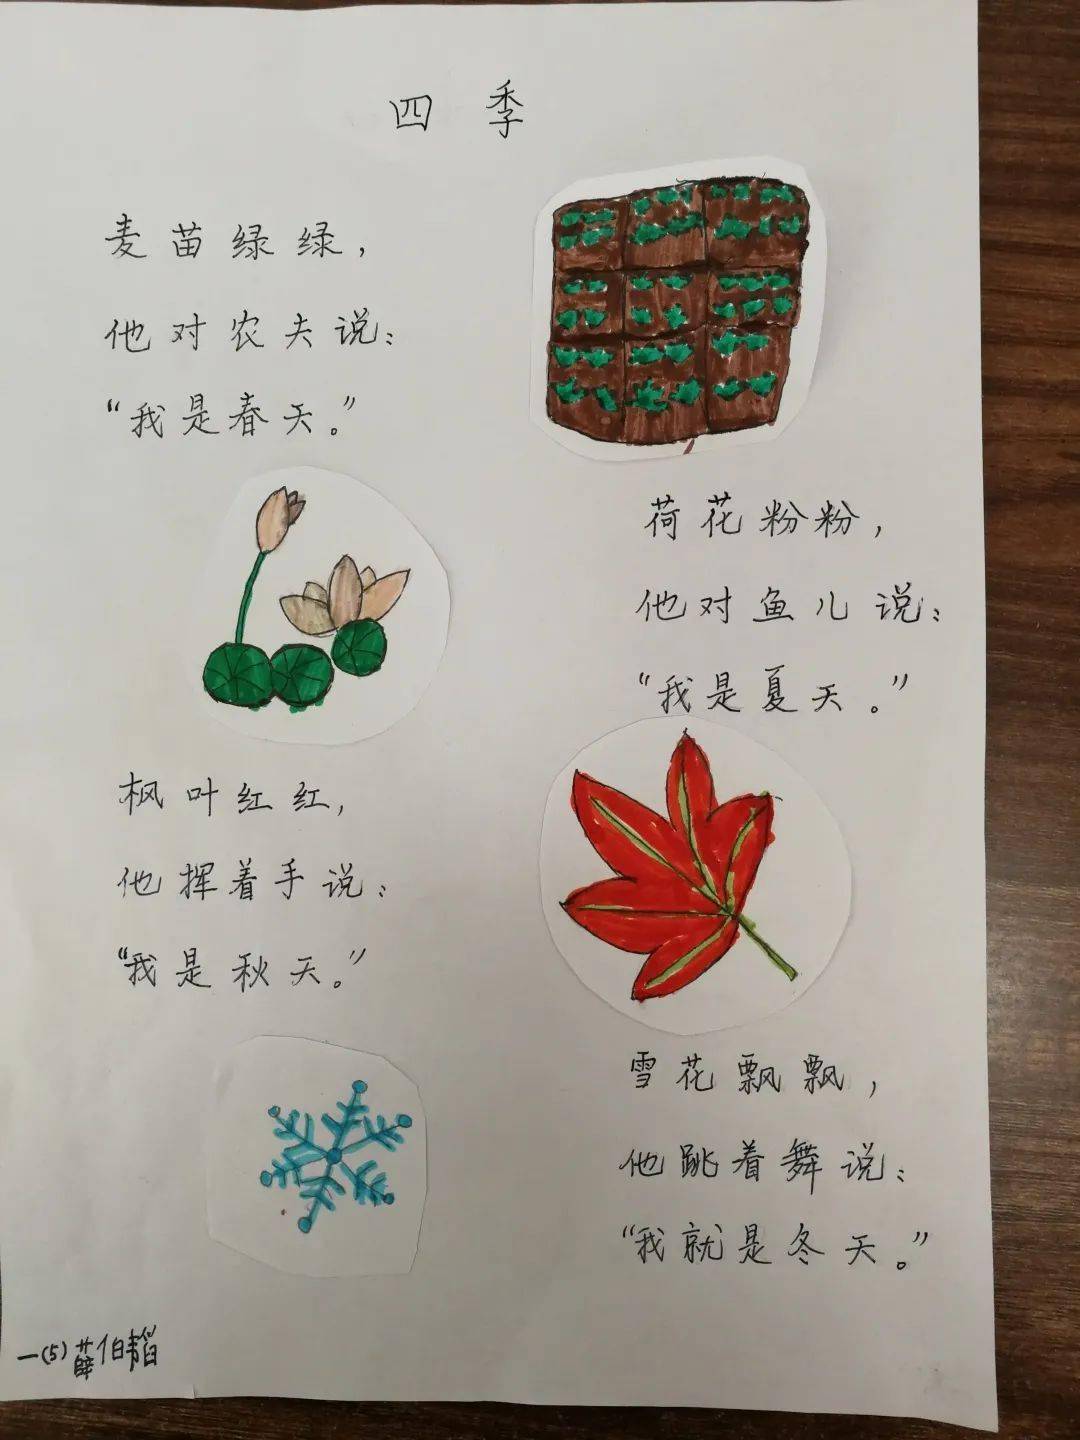 四季
麦苗绿绿，
他对农夫说：
“我是春天。”
荷花粉粉，
他对鱼儿说：
“我是夏天。”
枫叶红红，
他挥着手说：
“我是秋天。”
雪花飘飘，
他跳着舞说：
“我就是冬天。”
一(5)薛伯韬